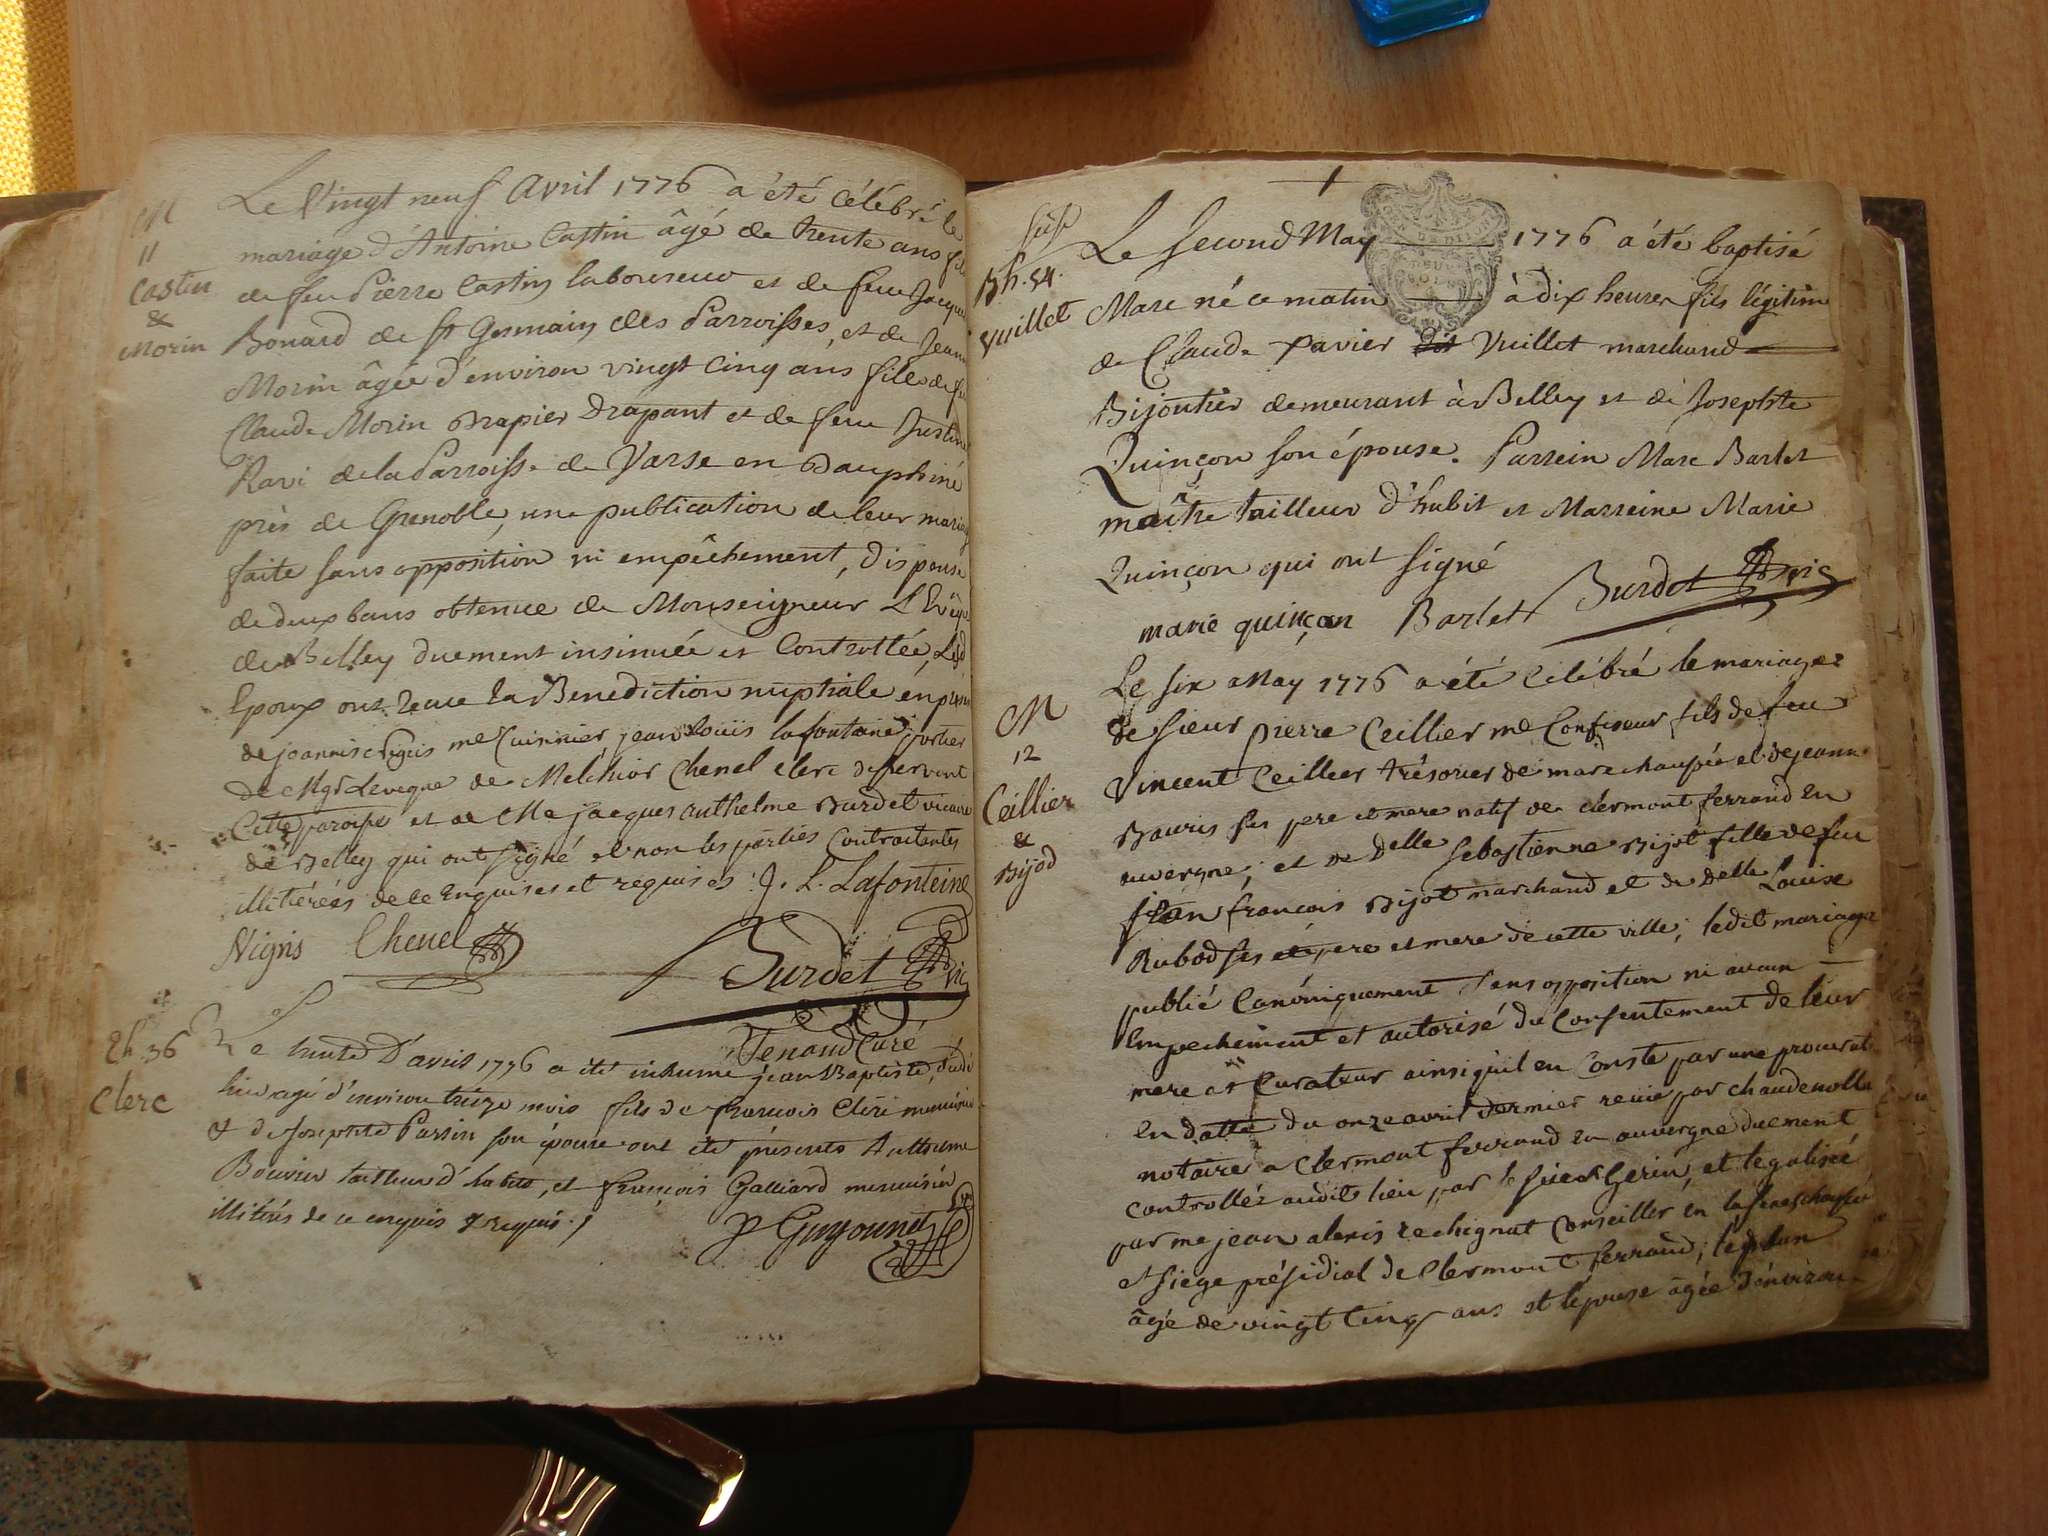 M
11
Castin
&
Morin
Le Vingt neuf Avril 1776 a été célébré le
mariage d'Antoine Castin âgé de trente ans fils
de feu Pierre Castin laboureur et de feue
Bonard de St Germain des Parroisses, et de Jeanne
Morin âgée d'environ vingt cinq ans fille de feu
Claude Morin Drapier Drapant et de feue Justine
Ravi de la Parroisse de Varse en Dauphiné
près de Grenoble, une publication de leur mariage
faite sans opposition ni empêchement, Dispense
de deux bans obtenue de Monseigneur L'Evêque
de Belley duement insinuée et Controllée,
Epoux ont recue la Benediction nuptiale en
de joannis Nigris me Cuisinier, jean Louis lafontaine portier
De Mgr Leveque de Melchior Chenel clerc desservant
Cette paroisse et de Me jacques anthelme Burdet vicaire
de Belley qui ont signé et non les parties Contractantes
illitérées de ce Enquises et requises. J. L. Lafonteine
Nigris Chenel Burdet vic
Tenand Curé
Ch. 36
Clerc
Le trente D'avril 1776 a été inhumé jean Baptiste,
hier agé d'environ treize mois fils de françois Clerc menuisier
& de Josephte Parsin son épouse ont été présents Anthelme
Bouvier tailleur d'habits, et françois Galliard menuisier
illitérés de ce enquis & requis.
Guyonnet
Bh. 54.
Vuillet
Le second May 1776 a été baptisé
Marc né ce matin à dix heures fils légitime
de Claude Xavier dit Vuillet marchand
Bijoutier demeurant à Belley et de Josephte
Quinçon son épouse. Parrein Marc Barlet
maître tailleur d'habit et Marreine Marie
Quinçon qui ont signé
marie quinçon Barlet Burdet vic
M
12
Ceillier
&
Bijod
Le six May 1776 a été Célébré le mariage
de sieur pierre Ceillier me Confiseur fils de feu
Vincent Ceillier trésorier de marechaussée et de jeanne
Bauris ses pere et mere natif de clermont ferrand en
auvergne; et de Delle Sebastienne Bijot fille de feu
jean françois Bijot marchand et de Delle Louise
Rubod ses pere et mere de cette ville; ledit mariage
publié Canoniquement sans opposition ni aucun
Empechement et autorisé du Consentement de leur
mere et Curateur ainsi qu'il en Conste par une procuration
En datte du onze avril dernier reçue par chaudenolle
notaire a Clermont ferrand en auvergne duement
controllée audit lieu par le sieur Gerin, et legalisée
par me jean alexis rechignat Conseiller en la seneschaussée
et siege présidial de Clermont ferrand;
âgé de vingt Cinq ans et l'épouse âgée d'environ